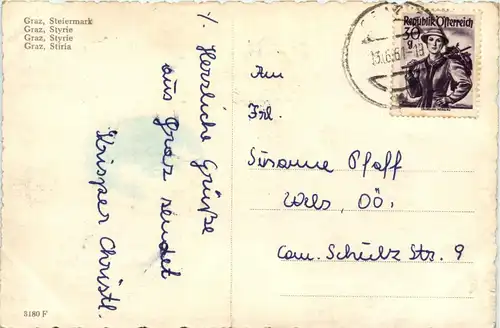 Graz, Steiermark
Graz, Styrie
Graz, Styrie
Graz, Stiria
Herzliche Grüße
aus Graz sendet
Krisper Christl.
3180 F
Republik Österreich
30
g
An
Frl.
Susanne Pfaff
Wels, OÖ.
Cam. Schulz Str. 9